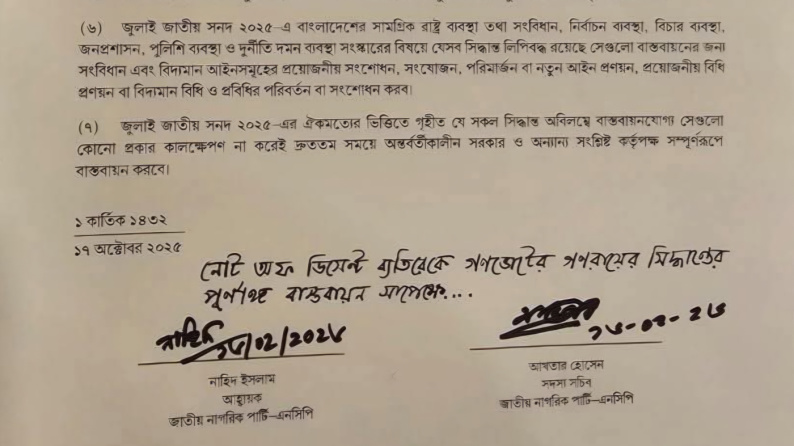 (৬) জুলাই জাতীয় সনদ ২০২৫-এ বাংলাদেশের সামগ্রিক রাষ্ট্র ব্যবস্থা তথা সংবিধান, নির্বাচন ব্যবস্থা, বিচার ব্যবস্থা,
জনপ্রশাসন, পুলিশি ব্যবস্থা ও দুর্নীতি দমন ব্যবস্থা সংস্কারের বিষয়ে যেসব সিদ্ধান্ত লিপিবদ্ধ রয়েছে সেগুলো বাস্তবায়নের জন্য
সংবিধান এবং বিদ্যমান আইনসমূহের প্রয়োজনীয় সংশোধন, সংযোজন, পরিমার্জন বা নতুন আইন প্রণয়ন, প্রয়োজনীয় বিধি
প্রণয়ন বা বিদ্যমান বিধি ও প্রবিধির পরিবর্তন বা সংশোধন করব।
(৭) জুলাই জাতীয় সনদ ২০২৫-এর ঐকমত্যের ভিত্তিতে গৃহীত যে সকল সিদ্ধান্ত অবিলম্বে বাস্তবায়নযোগ্য সেগুলো
কোনো প্রকার কালক্ষেপণ না করেই দ্রুততম সময়ে অন্তর্বর্তীকালীন সরকার ও অন্যান্য সংশ্লিষ্ট কর্তৃপক্ষ সম্পূর্ণরূপে
বাস্তবায়ন করবে।
১ কার্তিক ১৪৩২
১৭ অক্টোবর ২০২৫
নোট অফ ডিসেন্ট ব্যতিরেকে গণভোটের গণরায়ের সিদ্ধান্তের
পূর্ণাঙ্গ বাস্তবায়ন সাপেক্ষে...
নাহিদ
/02/202
নাহিদ ইসলাম
আহ্বায়ক
জাতীয় নাগরিক পার্টি–এনসিপি
আখতার হোসেন
সদস্য সচিব
জাতীয় নাগরিক পার্টি–এনসিপি